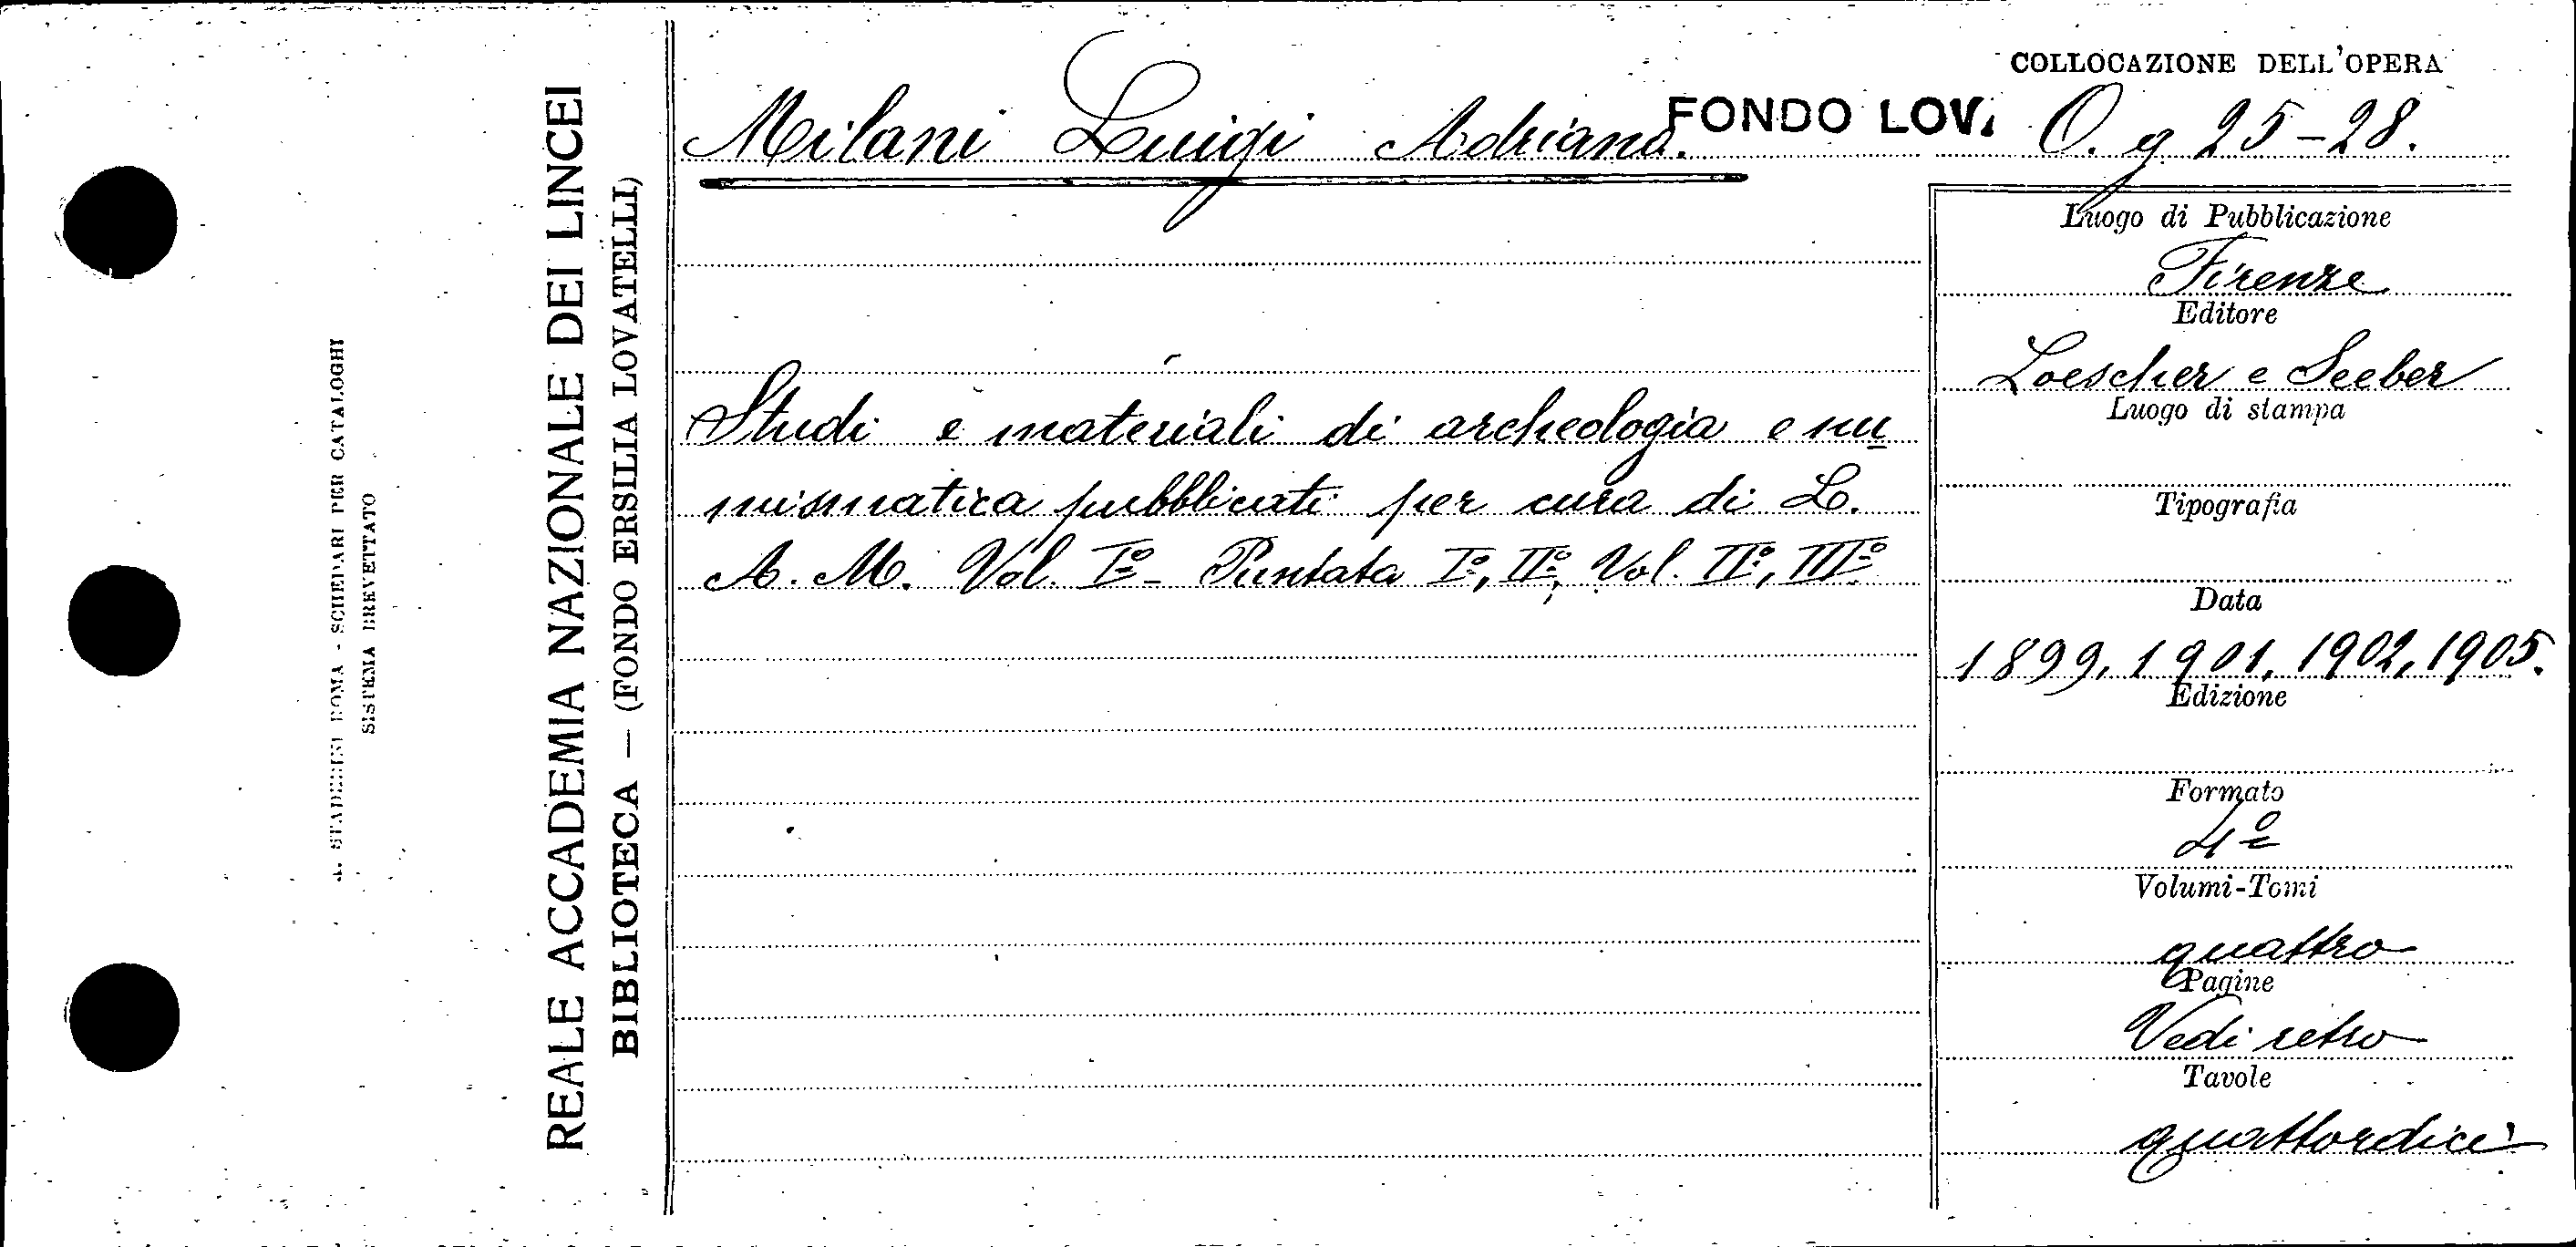 A. STADERINI ROMA - SCHEDARI PER CATALOGHI
SISTEMA BREVETTATO
REALE ACCADEMIA NAZIONALE DEI LINCEI
BIBLIOTECA — (FONDO ERSILIA LOVATELLI)
Milani Luigi Adriano.
FONDO LOV.
Studi e materiali di archeologia e nu
mismatica pubblicati per cura di L.
A. M. Vol. Iº - Puntata Iº, IIº, Vol. IIº, IIIº
COLLOCAZIONE DELL'OPERA
O. g. 25-28.
Luogo di Pubblicazione
Firenze
Editore
Loescher e Seeber
Luogo di stampa
Tipografia
Data
1899, 1901, 1902, 1905.
Edizione
Formato
4º
Volumi-Tomi
quattro
Pagine
Vedi retro
Tavole
quattordici